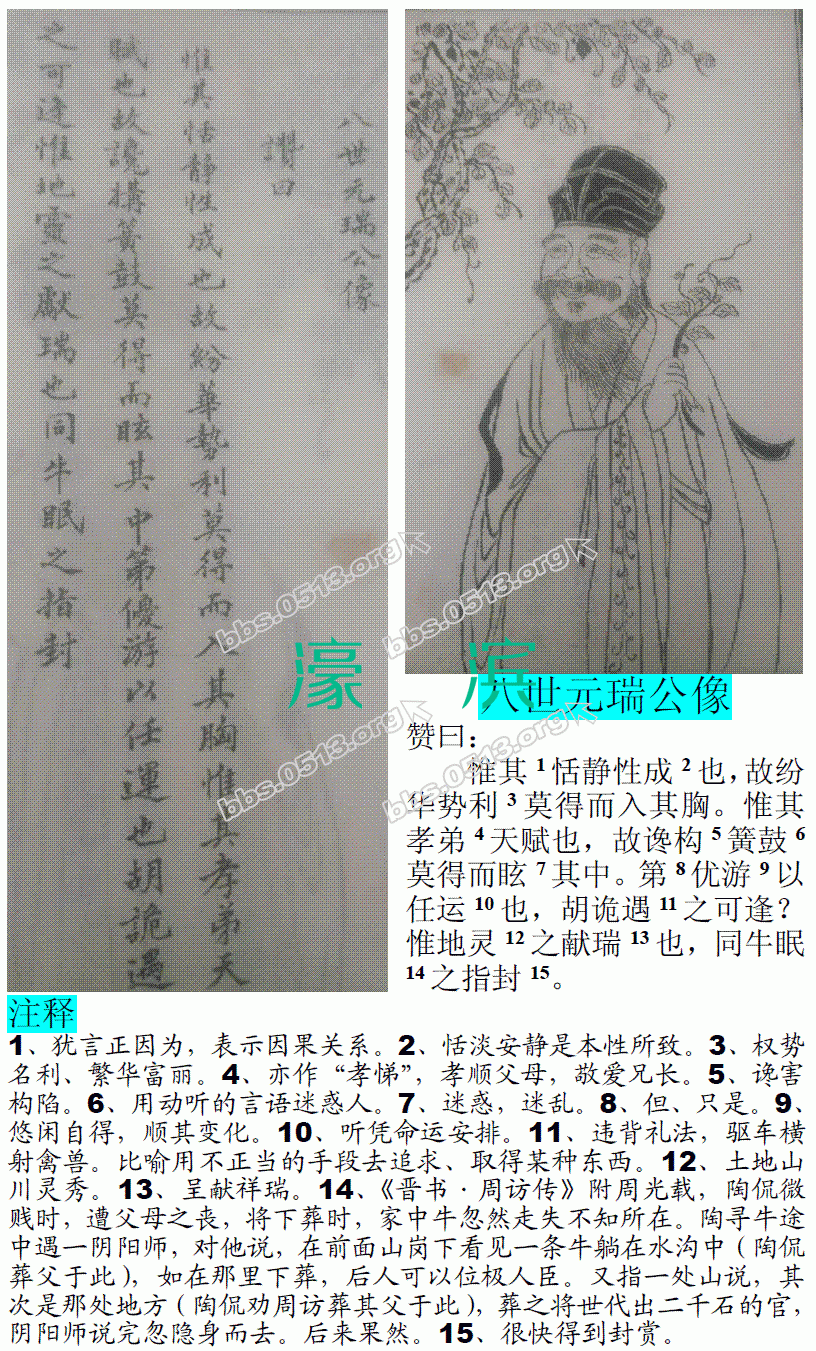 八世元瑞公像
讚曰
惟其恬静性成也故紛華勢利莫得而入其胸惟其孝弟天
賦也故讒搆簧鼓莫得而眩其中第優游以任運也胡詭遇
之可逢惟地靈之獻瑞也同牛眠之指封
bbs.0513.org
bbs.0513.org
bbs.0513.org
bbs.0513.org
濠 滨
八世元瑞公像
赞曰：
惟其1恬静性成2也，故纷
华势利3莫得而入其胸。惟其
孝弟4天赋也，故谗构5簧鼓6
莫得而眩7其中。第8优游9以
任运10也，胡诡遇11之可逢？
惟地灵12之献瑞13也，同牛眠
14之指封15。
注释
1、犹言正因为，表示因果关系。2、恬淡安静是本性所致。3、权势
名利、繁华富丽。4、亦作“孝悌”，孝顺父母，敬爱兄长。5、谗害
构陷。6、用动听的言语迷惑人。7、迷惑，迷乱。8、但、只是。9、
悠闲自得，顺其变化。10、听凭命运安排。11、违背礼法，驱车横
射禽兽。比喻用不正当的手段去追求、取得某种东西。12、土地山
川灵秀。13、呈献祥瑞。14、《晋书·周访传》附周光载，陶侃微
贱时，遭父母之丧，将下葬时，家中牛忽然走失不知所在。陶寻牛途
中遇一阴阳师，对他说，在前面山岗下看见一条牛躺在水沟中（陶侃
葬父于此），如在那里下葬，后人可以位极人臣。又指一处山说，其
次是那处地方（陶侃劝周访葬其父于此），葬之将世代出二千石的官，
阴阳师说完忽隐身而去。后来果然。15、很快得到封赏。